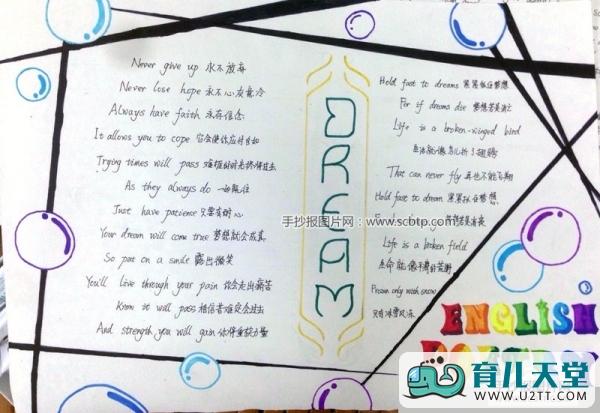 Never give up 永不放弃
Never lose hope 永不心灰意冷
Always have faith 永存信念
It allows you to cope 它会使你应付自如
Trying times will pass 难捱的时光终将过去
As they always do 一如既往
Just have patience 只要有耐心
Your dream will come true 梦想就会成真
So put on a smile 露出微笑
You'll live through your pain 你会走出痛苦
Know it will pass 相信苦难定会过去
And strength you will gain 你将重获力量
DREAM
手抄报图片网：www.scbtp.com
Hold fast to dreams 紧紧抓住梦想
For if dreams die 梦想若是消亡
Life is a broken-winged bird
生活就像鸟儿折了翅膀
That can never fly 再也不能飞翔
Hold fast to dream 紧紧抓住梦想
Life is a broken field
生命就像贫瘠的荒野
Frozen only with snow
只有冰雪风冻
ENGLISH
育儿天堂
WWW.U2TT.COM